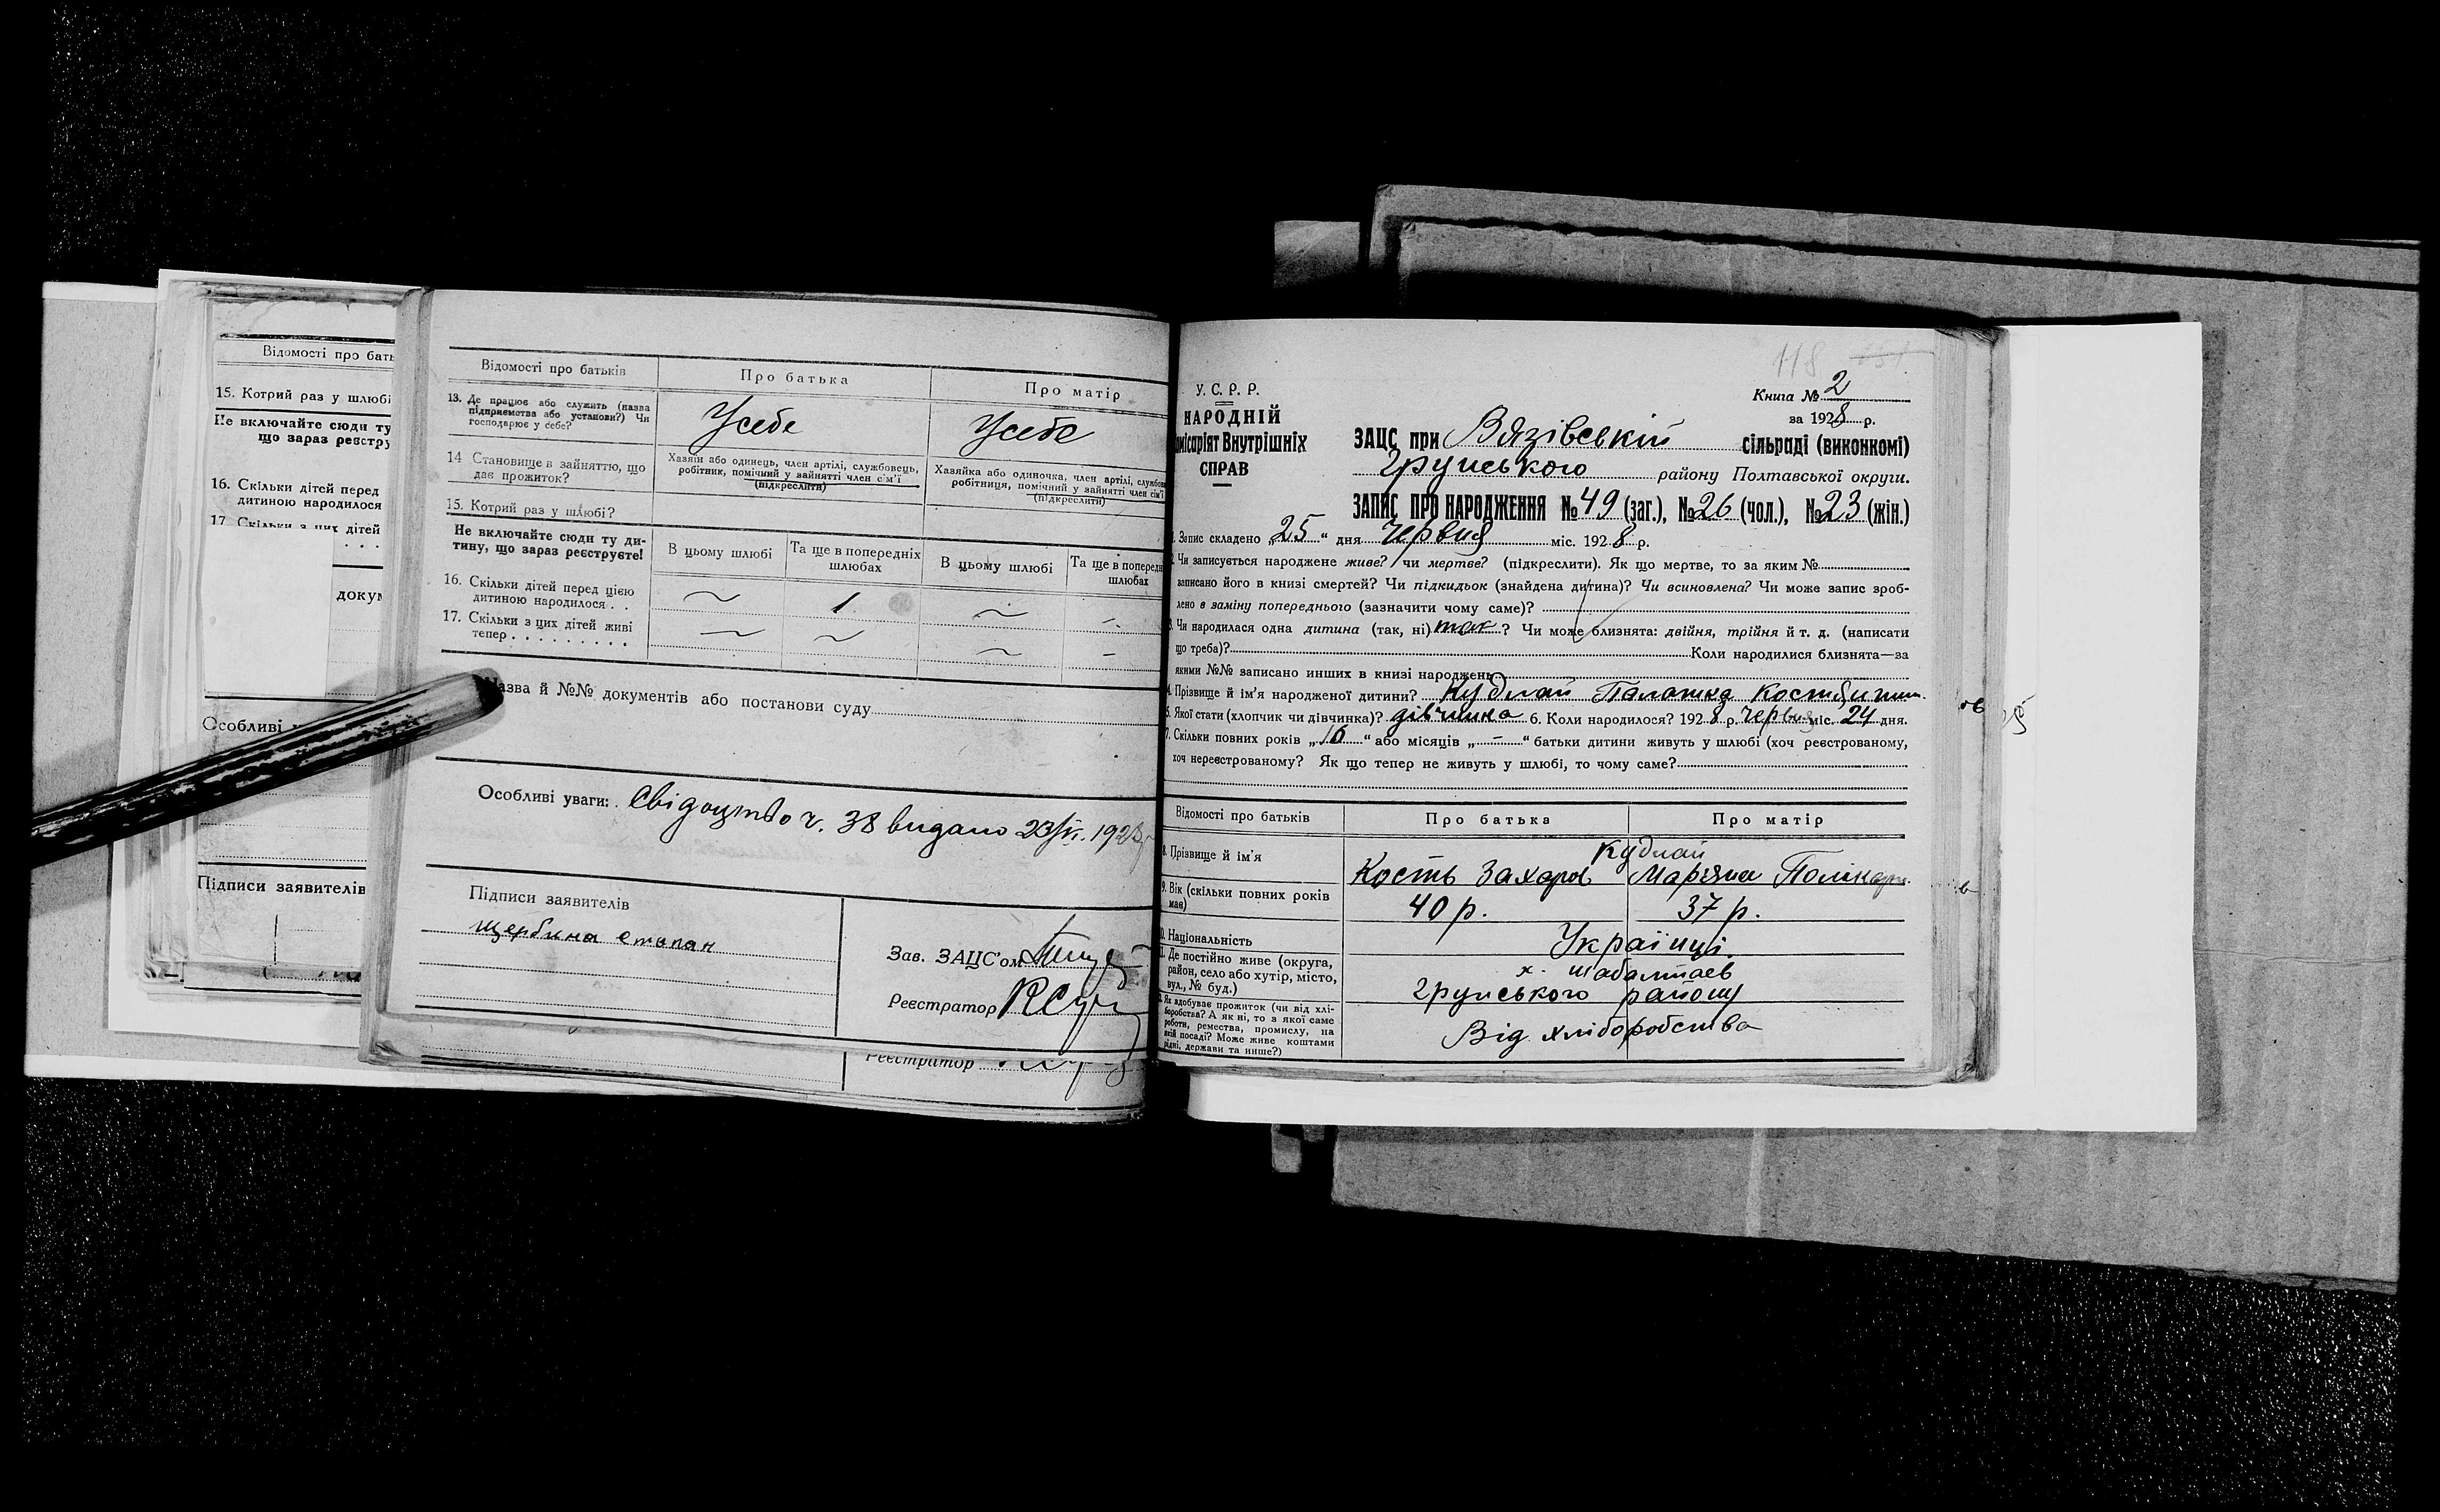 Відомості про бать
15. Котрий раз у шлюбі
Не включайте сюди ту
що зараз реєстру
16. Скільки дітей перед
дитиною народилося
17. Скільки з цих дітей
докум
Особливі
Підписи заявителів
Відомості про батьків
Про батька
Про матір
13. Де працює або служить (назва
підприємства або установи?) Чи
господарює у себе?
Усебе
Усебе
14 Становище в зайняттю, що
дає прожиток?
Хазяїн або одинець, член артілі, службовець,
робітник, помічний у зайнятті член сім'ї
(підкреслити)
Хазяйка або одиночка, член артілі, службов
робітниця, помічний у зайнятті член сім'ї
(підкреслити)
15. Котрий раз у шлюбі?
Не включайте сюди ту ди-
тину, що зараз реєструєте!
В цьому шлюбі
Та ще в попередніх
шлюбах
В цьому шлюбі
Та ще в поперед
шлюбах
16. Скільки дітей перед цією
дитиною народилося . .
1
17. Скільки з цих дітей живі
тепер . . . . . . . . .
Назва й №№ документів або постанови суду
Особливі уваги: Свідоцтво ч. 38 видано 23/VI. 1928
Підписи заявителів
Щербина Степан
Зав. ЗАЦС'ом
Реєстратор
Реєстратор
118
Книга № 2
за 1928 р.
У. С. Р. Р.
НАРОДНІЙ
місаріят Внутрішніх
СПРАВ
ЗАЦС при Вязівській сільраді (виконкомі)
Грунського району Полтавської округи.
ЗАПИС ПРО НАРОДЖЕННЯ № 49 (заг.), № 26 (чол.), № 23 (жін.)
1. Запис складено „25“ дня червня міс. 1928 р.
Чи записується народжене живе? чи мертве? (підкреслити). Як що мертве, то за яким №
записано його в книзі смертей? Чи підкидьок (знайдена дитина)? Чи всиновлена? Чи може запис зроб-
лено в заміну попереднього (зазначити чому саме)?
3. Чи народилася одна дитина (так, ні) так? Чи може близнята: двійня, трійня й т. д. (написати
що треба)? Коли народилися близнята—за
якими №№ записано инших в книзі народжень
4. Прізвище й ім'я народженої дитини? Кудлай Палажка
5. Якої стати (хлопчик чи дівчинка)? дівчинка 6. Коли народилося? 1928 р. червня міс. 24 дня.
7. Скільки повних років „16“ або місяців „—“ батьки дитини живуть у шлюбі (хоч реєстрованому,
хоч нереєстрованому? Як що тепер не живуть у шлюбі, то чому саме?
Відомості про батьків
Про батька
Про матір
8. Прізвище й ім'я
Кудлай
Кость Захаров
Маряна Полікарп
9. Вік (скільки повних років
має)
40 р.
37 р.
Національність
Українці.
Де постійно живе (округа,
район, село або хутір, місто,
вул., № буд.)
х. Шабалтаєв
Грунського району
Як здобуває прожиток (чи від хлі-
боробства? А як ні, то з якої саме
роботи, ремества, промислу, на
якій посаді? Може живе коштами
рідні, держави та инше?)
Від хліборобства